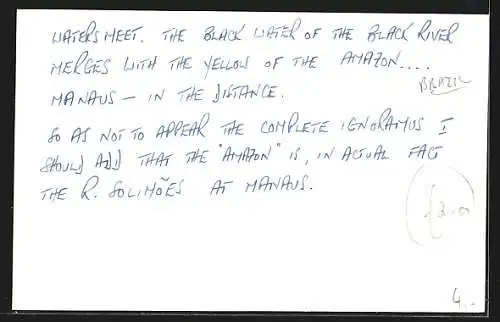 WATERS MEET. THE BLACK WATER OF THE BLACK RIVER
MERGES WITH THE YELLOW OF THE AMAZON....
BRAZIL
MANAUS — IN THE DISTANCE.
SO AS NOT TO APPEAR THE COMPLETE IGNORAMUS I
SHOULD ADD THAT THE "AMAZON" IS, IN ACTUAL FACT
THE R. SOLIMÕES AT MANAUS.
4,-